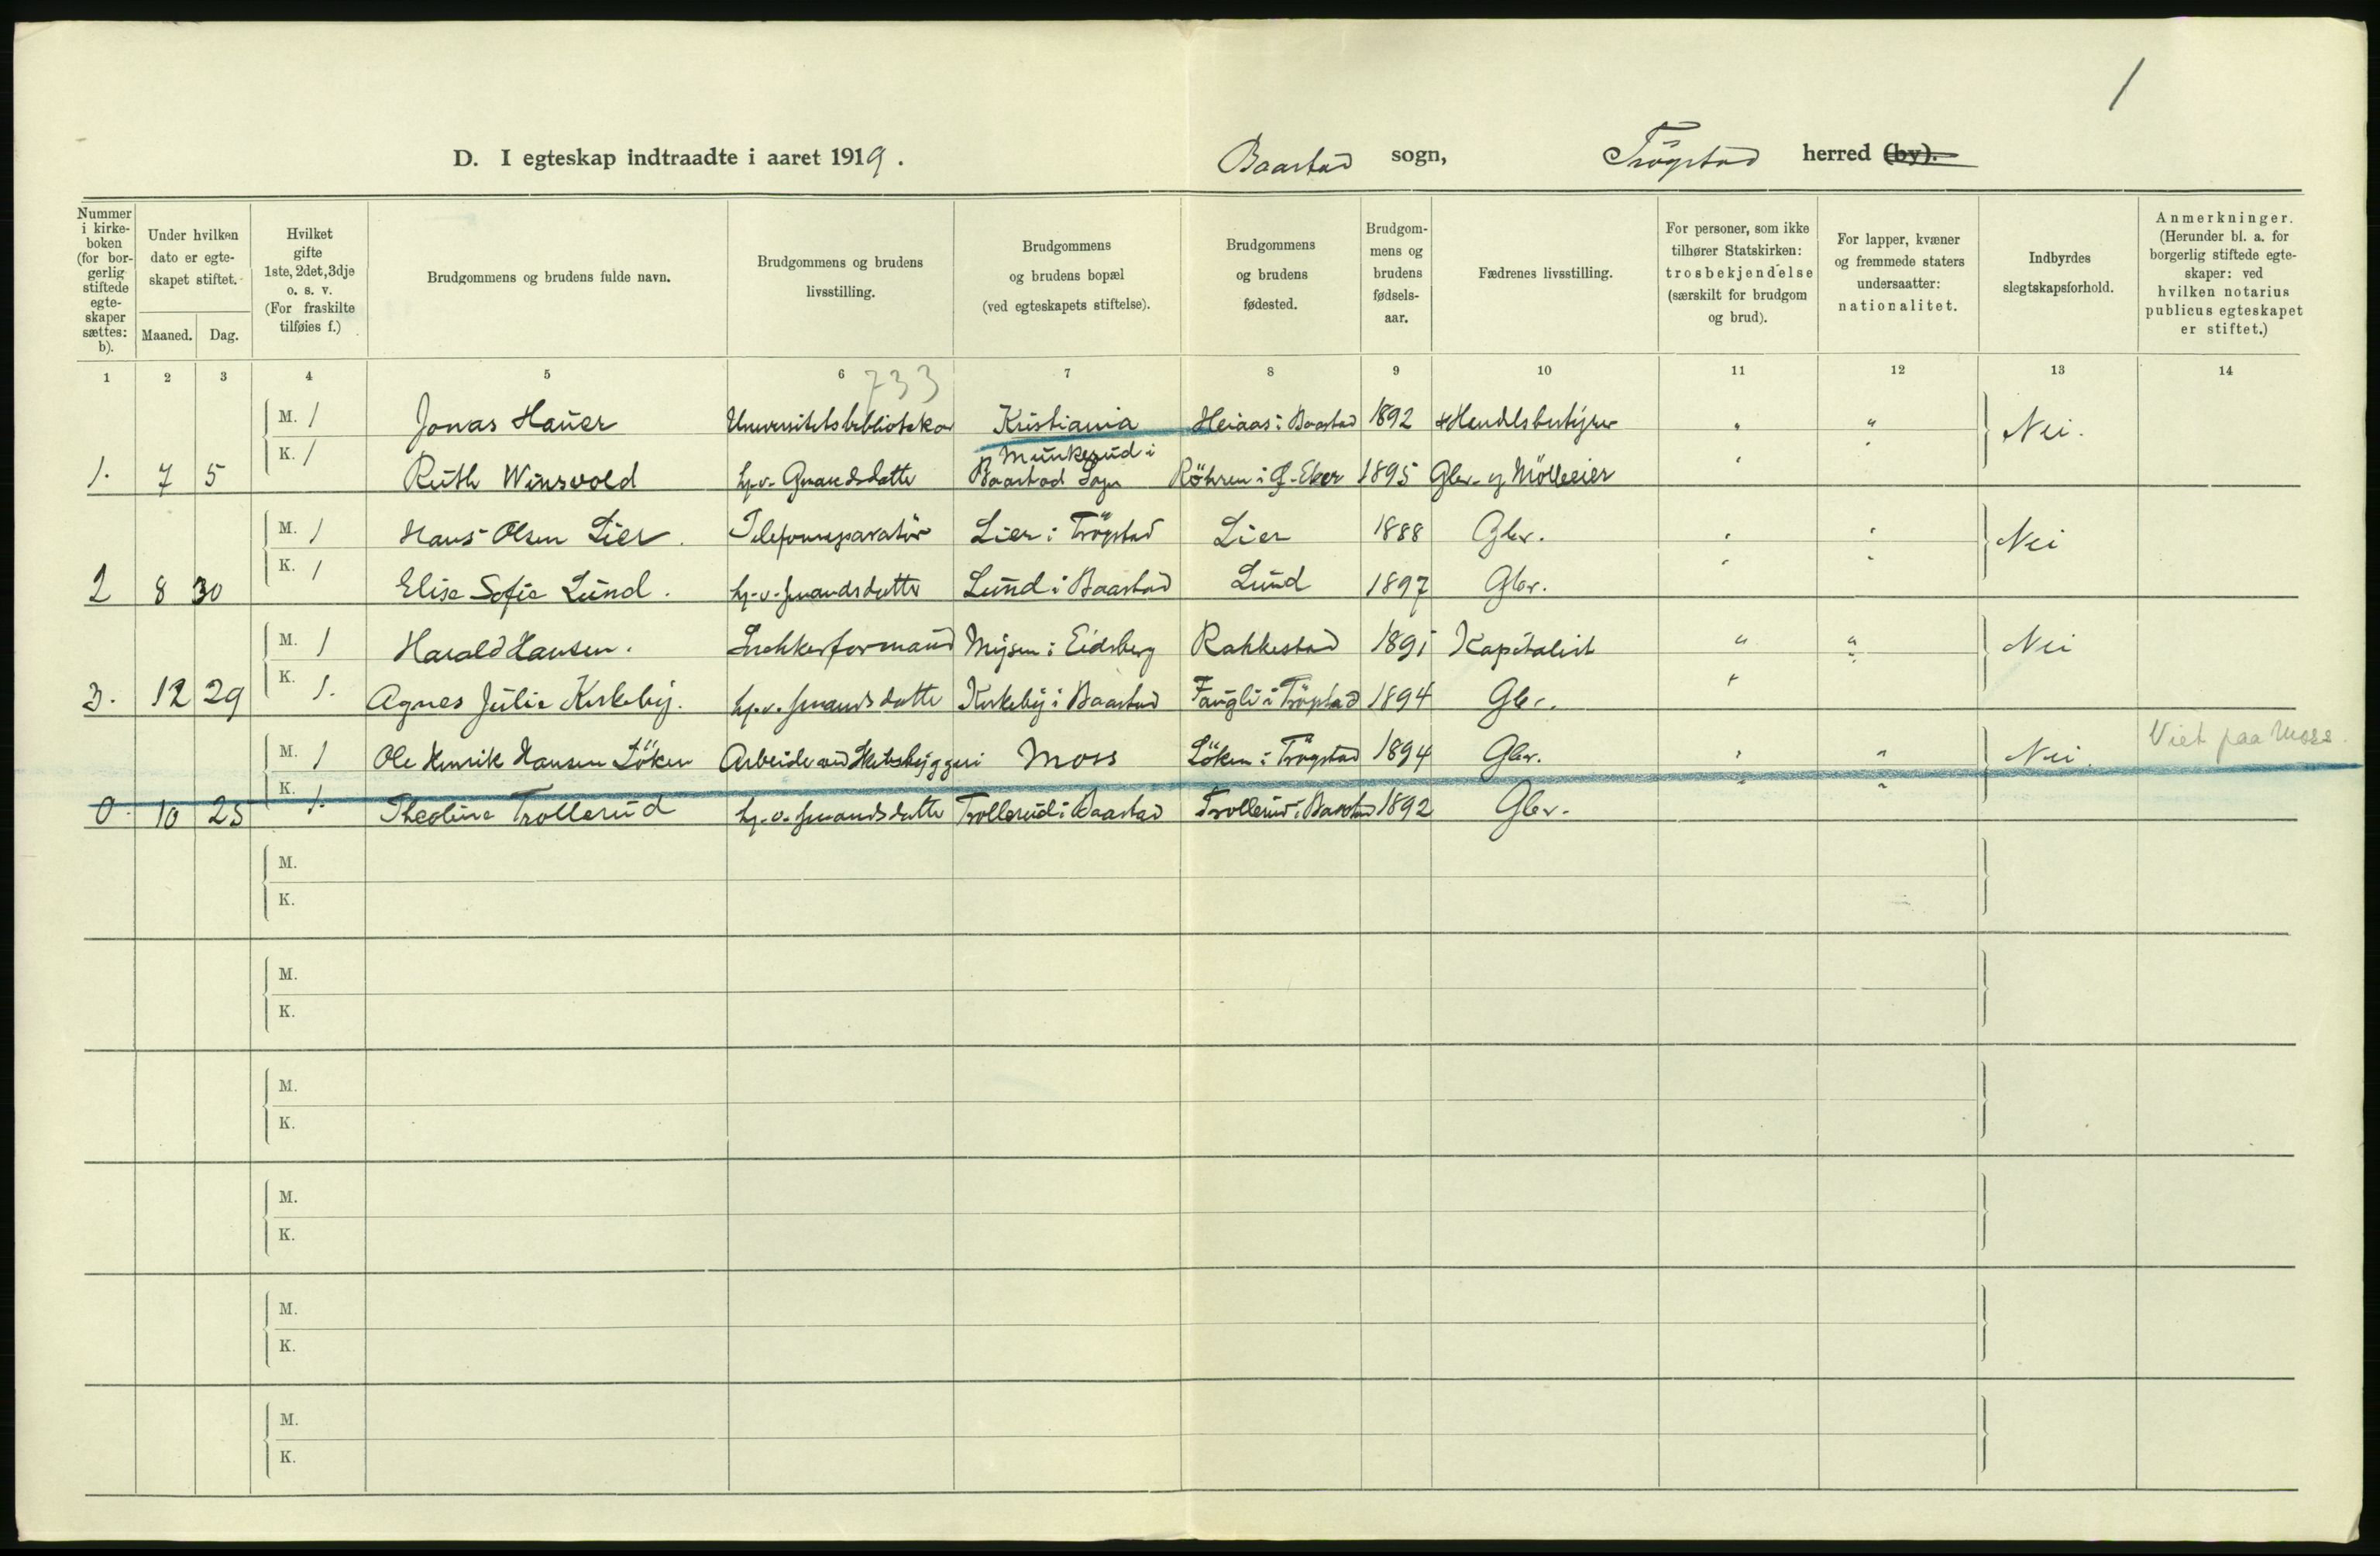 1
D. I egteskap indtraadte i aaret 1919. Baastad sogn, Trögstad herred (by).
Nummer i kirkeboken (for borgerlig stiftede egteskaper sættes: b).
Under hvilken dato er egteskapet stiftet.
Maaned. Dag.
Hvilket gifte 1ste, 2det, 3dje o. s. v. (For fraskilte tilføies f.)
Brudgommens og brudens fulde navn.
Brudgommens og brudens livsstilling.
Brudgommens og brudens bopæl (ved egteskapets stiftelse).
Brudgommens og brudens fødested.
Brudgommens og brudens fødselsaar.
Fædrenes livsstilling.
For personer, som ikke tilhører Statskirken: trosbekjendelse (særskilt for brudgom og brud).
For lapper, kvæner og fremmede staters undersaatter: nationalitet.
Indbyrdes slegtskapsforhold.
Anmerkninger. (Herunder bl. a. for borgerlig stiftede egteskaper: ved hvilken notarius publicus egteskapet er stiftet.)
1 2 3 4 5 6 7 8 9 10 11 12 13 14
733
M. 1 Jonas Hauer Universitetsbibliotekar Kristiania Heiaas i Baastad 1892 Handelsbestyrer " " Nei.
1. 7 5 K. 1 Ruth Winsvold hj.v. Gmandsdatter Munkerud i Baastad Sogn Röhren i Ø-Eker 1895 Gbr. og Mölleeier "
M. 1 Hans Olsen Lier. Telefonreparatör Lier i Trögstad Lier 1888 Gbr. " " Nei
2 8 30 K. 1 Elise Sofie Lund. hj.v. gmandsdatter Lund i Baastad Lund 1897 Gbr. " "
M. 1 Harald Hansen. Snekkerformand Mysen i Eidsberg Rakkestad 1891 Kapitalist " " Nei
3. 12 29 K. 1. Agnes Julie Kirkeby. hj.v. gmandsdatter Kirkeby i Baastad Fangli i Trögstad 1894 Gbr. " "
M. 1 Ole Henrik Hansen Löken Arbeider ved Skibsbyggeri Moss Löken i Trögstad 1894 Gbr. " " Nei. Viet paa Moss.
0. 10 25 K. 1. Theoline Trollerud hj.v. gmandsdatter Trollerud i Baastad Trollerud i Baastad 1892 Gbr. " "
M.
K.
M.
K.
M.
K.
M.
K.
M.
K.
M.
K.